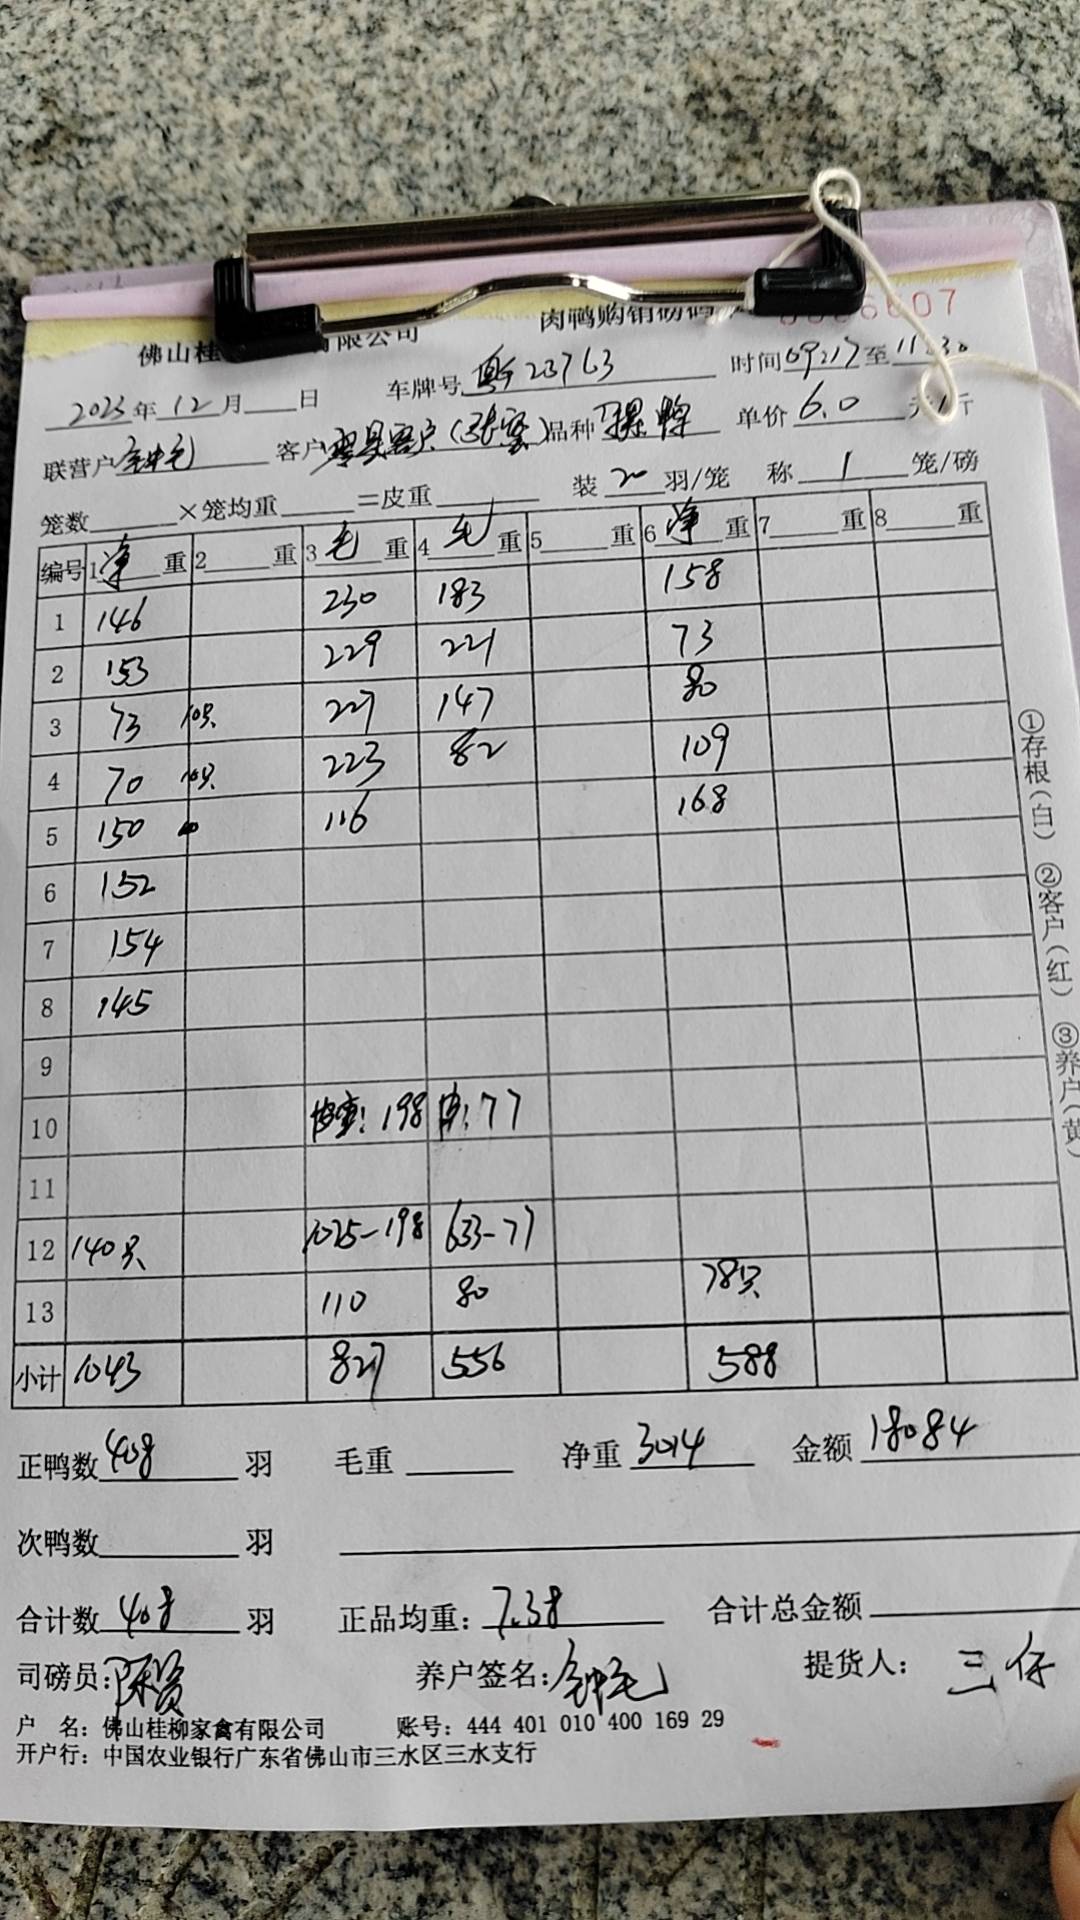 佛山桂 有限公司 肉鸭购销磅码 6607
2023年12月 日 车牌号 23763 时间09:17至11:30
联营户 钟毛 客户 零星客户 品种 鸭 单价 6.0 元/斤
笼数 ×笼均重 =皮重 装 20 羽/笼 称 1 笼/磅
编号 1 净 重 2 重 3 毛 重 4 毛 重 5 重 6 净 重 7 重 8 重
1 146 230 183 158
2 153 229 221 73
3 73 10只 227 147 80
4 70 10只 223 82 109
5 150 116 168
6 152
7 154
8 145
9
10 皮重:198 皮:77
11
12 140只 1025-198 633-77
13 110 80 78只
小计 1043 827 556 588
正鸭数 408 羽 毛重 净重 3014 金额 18084
次鸭数 羽
合计数 408 羽 正品均重: 7.38 合计总金额
司磅员: 陈贤 养户签名: 钟毛 提货人: 三仔
户 名: 佛山桂柳家禽有限公司 账号: 444 401 010 400 169 29
开户行: 中国农业银行广东省佛山市三水区三水支行
①存根(白) ②客户(红) ③养户(黄)